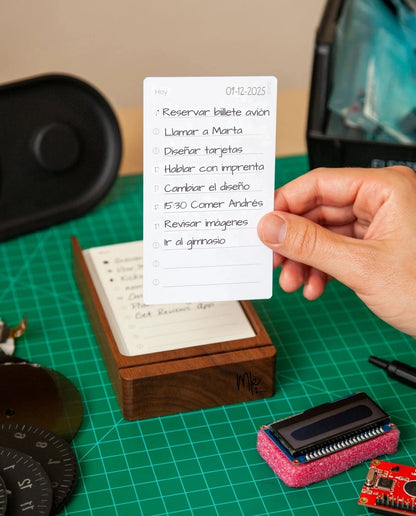 Hoy 01-12-2025
Reservar billete avión
Llamar a Marta
Diseñar tarjetas
Hablar con imprenta
Cambiar el diseño
15:30 Comer Andrés
Revisar imágenes
Ir al gimnasio
Get Reviews